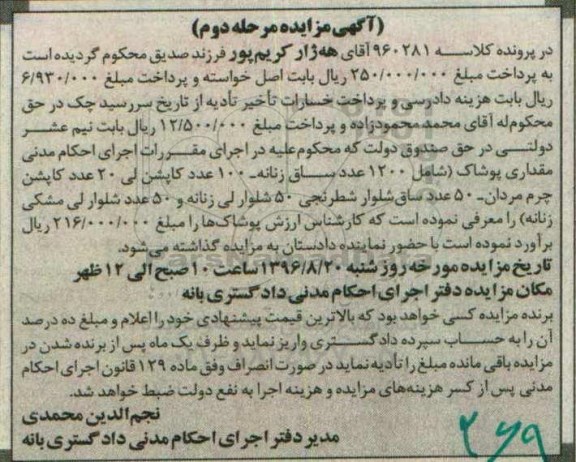 (آگهی مزایده مرحله دوم)
در پرونده کلاسه ۹۶۰۲۸۱ آقای هه ژار کریم پور فرزند صدیق محکوم گردیده است
به پرداخت مبلغ ۲۵۰/۰۰۰/۰۰۰ ریال بابت اصل خواسته و پرداخت مبلغ ۶/۹۳۰/۰۰۰
ریال بابت هزینه دادرسی و پرداخت خسارات تأخیر تأدیه از تاریخ سررسید چک در حق
محکوم‌له آقای محمد محمودزاده و پرداخت مبلغ ۱۲/۵۰۰/۰۰۰ ریال بابت نیم عشر
دولتی در حق صندوق دولت که محکوم‌علیه در اجرای مقررات اجرای احکام مدنی
مقداری پوشاک (شامل ۱۲۰۰ عدد ساق زنانه- ۱۰۰ عدد کاپشن لی ۲۰ عدد کاپشن
چرم مردان- ۵۰ عدد ساق‌شلوار شطرنجی ۵۰ شلوار لی زنانه و ۵۰ عدد شلوار لی مشکی
زنانه) را معرفی نموده است که کارشناس ارزش پوشاک‌ها را مبلغ ۲۱۶/۰۰۰/۰۰۰ ریال
برآورد نموده است با حضور نماینده دادستان به مزایده گذاشته می‌شود.
تاریخ مزایده مورخه روز شنبه ۱۳۹۶/۸/۲۰ ساعت ۱۰ صبح الی ۱۲ ظهر
مکان مزایده دفتر اجرای احکام مدنی دادگستری بانه
برنده مزایده کسی خواهد بود که بالاترین قیمت پیشنهادی خود را اعلام و مبلغ ده درصد
آن را به حساب سپرده دادگستری واریز نماید و ظرف یک ماه پس از برنده شدن در
مزایده باقی مانده مبلغ را تأدیه نماید در صورت انصراف وفق ماده ۱۲۹ قانون اجرای احکام
مدنی پس از کسر هزینه‌های مزایده و هزینه اجرا به نفع دولت ضبط خواهد شد.
نجم‌الدین محمدی
مدیر دفتر اجرای احکام مدنی دادگستری بانه